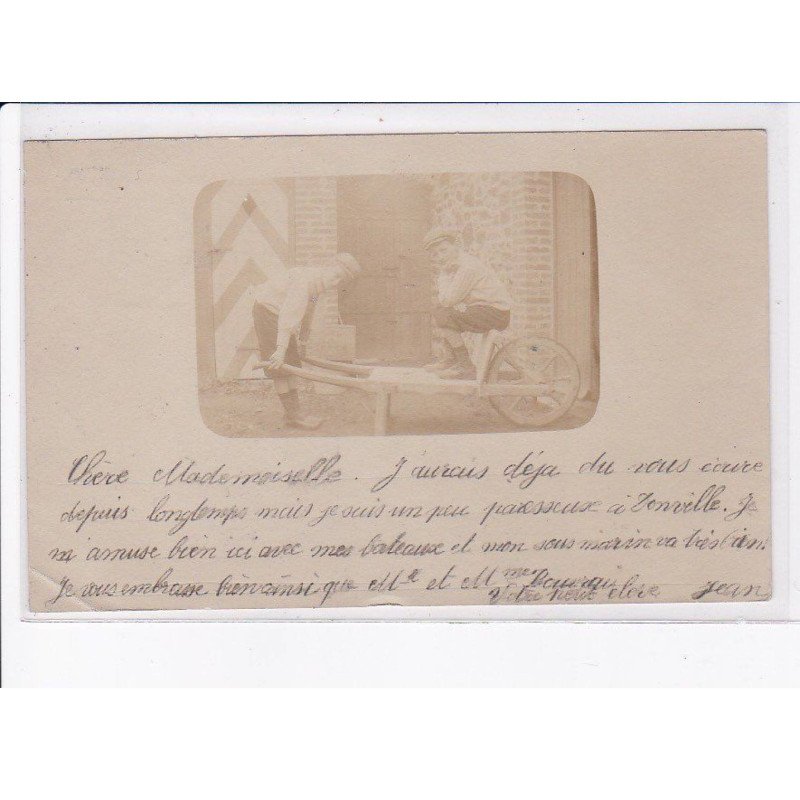 Chère Mademoiselle. J'aurais déja du vous écrire
depuis longtemps mais je suis un peu paresseux à Tonville. Je
m'amuse bien ici avec mes bateaux et mon sous marin va très bien.
Je vous embrasse bien ainsi que Mr et Mme
Votre vieux élève Jean